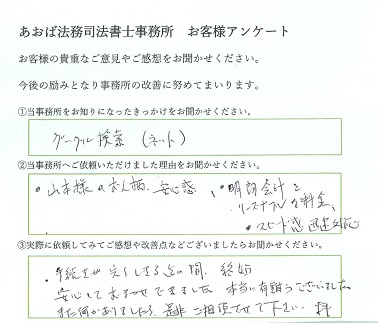 あおば法務司法書士事務所　お客様アンケート
お客様の貴重なご意見やご感想をお聞かせください。
今後の励みとなり事務所の改善に努めてまいります。
①当事務所をお知りになったきっかけをお聞かせください。
グーグル検索（ネット）
②当事務所へご依頼いただけました理由をお聞かせください。
・山本様のお人柄、安心感、・明朗会計と
リーズナブルな料金、
・スピード感 迅速対応
③実際に依頼してみてご感想や改善点などございましたらお聞かせください。
・手続きが完了するまでの間、終始
安心しておまかせできました。本当に有難うございました。
また何かありましたら、是非ご相談させて下さい。拝